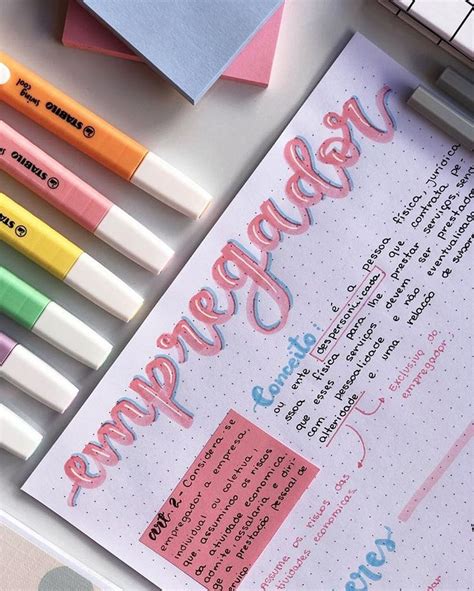 STABILO
swing
cool
STABILO
empregador
Conceito: é a pessoa física, jurídica
ou ente despersonalizada que contrata pe
ssoa física para lhe prestar serviços, sen
que esses serviços devem ser prestados
com pessoalidade e não eventualidade
alteridade e uma relação de subo
→ Exclusivo do
empregador:
art. 2 - Considera-se
empregador a empresa,
individual ou coletiva,
que assumindo os riscos
da atividade econômica,
admite, assalaria e diri
ge a prestação pessoal de
serviço.
Assume os riscos das
atividades econômicas.